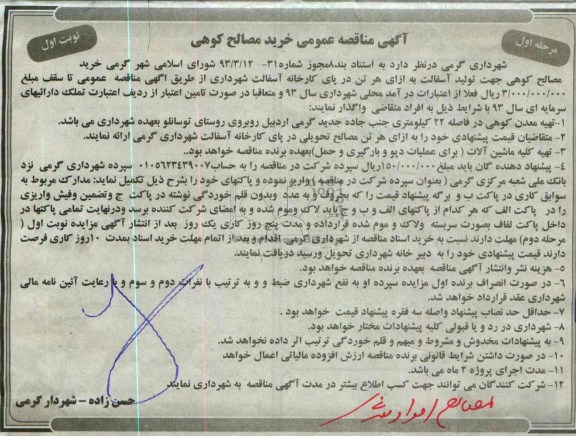 آگهی مناقصه عمومی خرید مصالح کوهی
مرحله اول
نوبت اول
شهرداری گرمی درنظر دارد به استناد بند۸مجوز شماره۳۱- ۹۳/۳/۱۲ شورای اسلامی شهر گرمی خرید
مصالح کوهی جهت تولید آسفالت به ازای هر تن در پای کارخانه آسفالت شهرداری از طریق آگهی مناقصه عمومی تا سقف مبلغ
۳/۰۰۰/۰۰۰/۰۰۰ ریال فعلا از اعتبارات در آمد محلی شهرداری سال ۹۳ و متعاقبا در صورت تامین اعتبار از ردیف اعتبارت تملک دارائیهای
سرمایه ای سال ۹۳ با شرایط ذیل به افراد متقاضی واگذار نمایند:
۱-تهیه معدن کوهی در فاصله ۲۲ کیلومتری جنب جاده جدید گرمی اردبیل روبروی روستای توسانلو بعهده شهرداری می باشد.
۲- متقاضیان قیمت پیشنهادی خود را به ازای هر تن مصالح تحویلی در پای کارخانه آسفالت شهرداری گرمی ارائه نمایند.
۳- تهیه کلیه ماشین آلات ( برای عملیات دپو و بارگیری و حمل)بعهده برنده مناقصه خواهد بود..
۴- پیشنهاد دهنده گان باید مبلغ ۱۵۰/۰۰۰/۰۰۰ریال سپرده شرکت در مناقصه را به حساب۰۱۰۵۶۲۳۴۳۹۰۰۷ سپرده شهرداری گرمی نزد
بانک ملی شعبه مرکزی گرمی ( بعنوان سپرده شرکت در مناقصه ) واریز نموده و پاکتهای خود را بشرح ذیل تکمیل نماید: مدارک مربوط به
سوابق کاری در پاکت ب و برگه پیشنهاد قیمت را که بحروف و به عدد وبدون قلم خوردگی نوشته در پاکت ج وتضمین وفیش واریزی
را در پاکت الف که هر کدام از پاکتهای الف و ب و ج باید لاک وموم شده و به امضای شرکت کننده برسد ودرنهایت تمامی پاکتها در
داخل پاکت لفاف بصورت سربسته ولاک و موم شده قرارداده و مدت پنج روز کاری یک روز بعد از انتشار آگهی مزایده نوبت اول (
مرحله دوم) مهلت دارند نسبت به خرید اسناد مناقصه از شهرداری گرمی اقدام وبعد از اتمام مهلت خرید اسناد بمدت ۱۰روز کاری فرصت
دارند قیمت پیشنهادی خود را به دبیر خانه شهرداری تحویل ورسید دریافت نمایند.
۵- هزینه نشر وانتشار آگهی مناقصه بعهده برنده مناقصه خواهد بود.
۶- در صورت انصراف برنده اول مزایده سپرده او به نفع شهرداری ضبط و و به ترتیب با نفرات دوم و سوم و با رعایت آئین نامه مالی
شهرداری عقد قرارداد خواهد شد.
۷-حداقل حد نصاب پیشنهاد واصله سه فقره پیشنهاد قیمت خواهد بود .
۸- شهرداری در رد و یا قبولی کلیه پیشنهادات مختار خواهد بود.
۹- به پیشنهادات مخدوش و مشروط و مبهم و قلم خوردگی ترتیب اثر داده نخواهد شد.
۱۰- در صورت داشتن شرایط قانونی برنده مناقصه ارزش افزوده مالیاتی اعمال خواهد
۱۱- مدت اجرای پروژه ۲ ماه می باشد.
۱۲- شرکت کنندگان می توانند جهت کسب اطلاع بیشتر در مدت آگهی مناقصه به شهرداری نمایند
حسن زاده - شهردار گرمی
مصالح